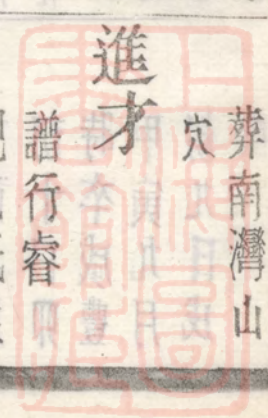 葬南灣山
穴
進才
譜行睿